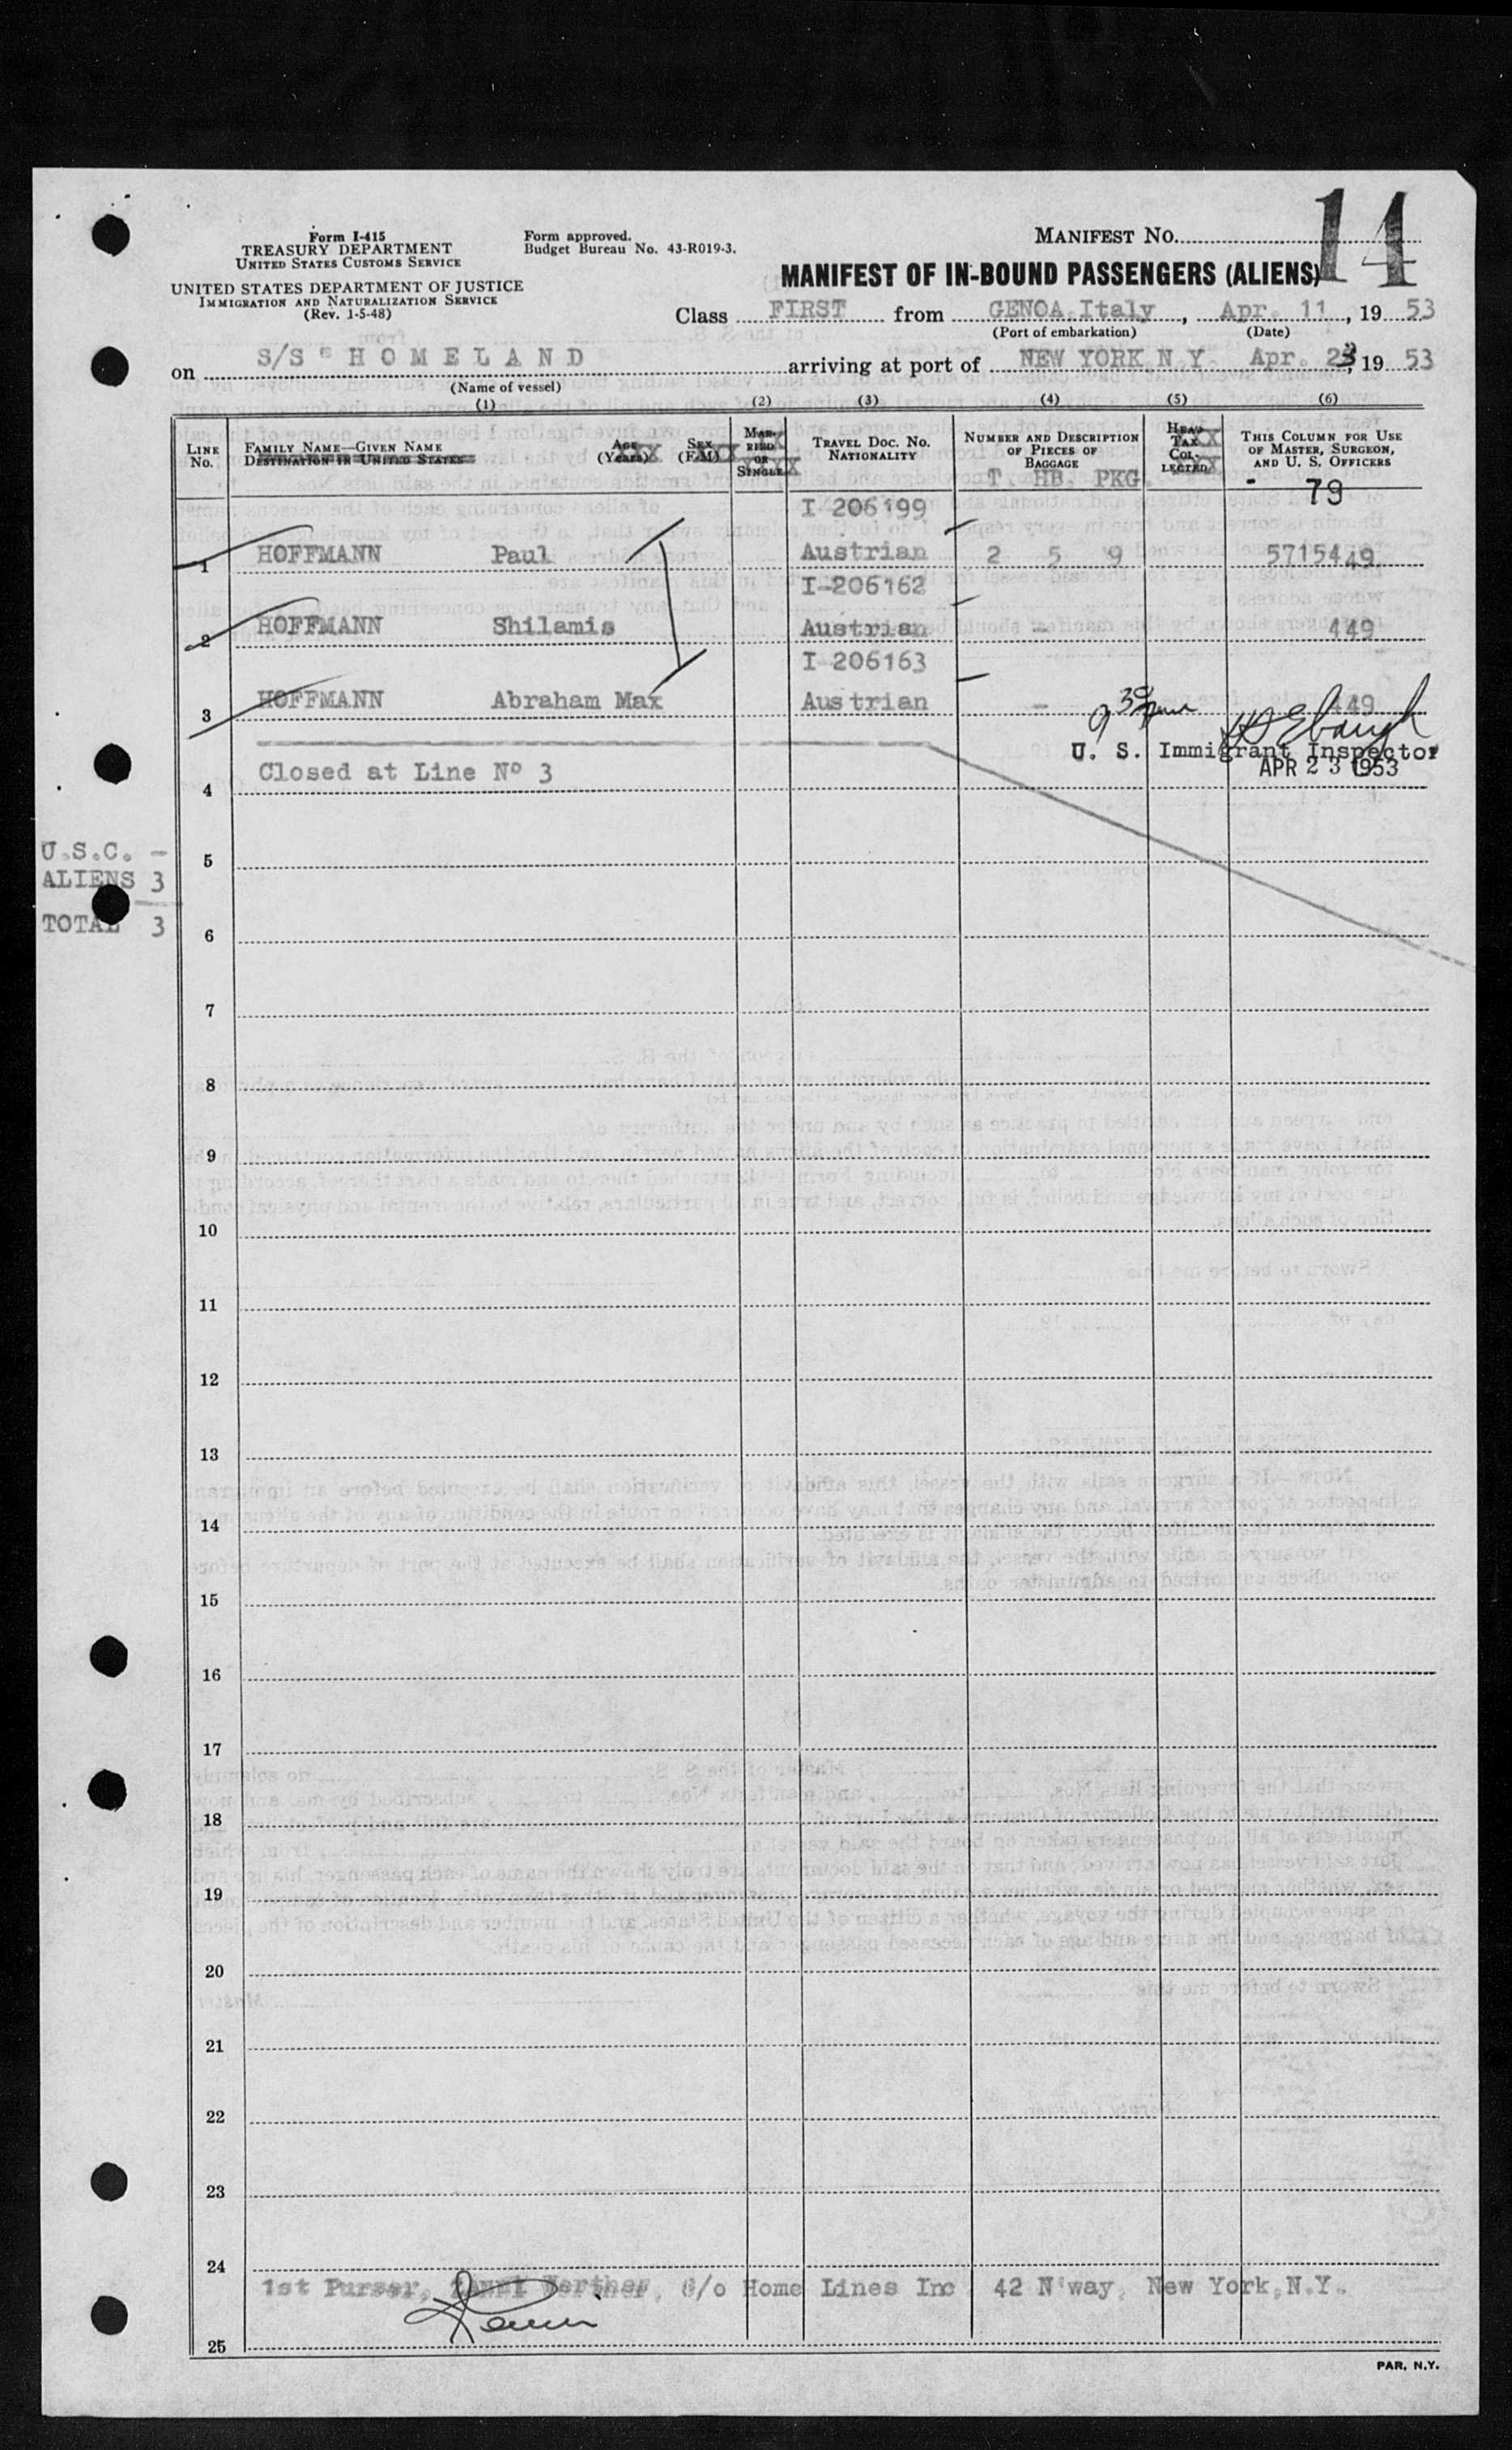 14
Form I-415
TREASURY DEPARTMENT
UNITED STATES CUSTOMS SERVICE
UNITED STATES DEPARTMENT OF JUSTICE
IMMIGRATION AND NATURALIZATION SERVICE
(Rev. 1-5-48)
Form approved.
Budget Bureau No. 43-R019-3.
MANIFEST NO.
MANIFEST OF IN-BOUND PASSENGERS (ALIENS)
Class FIRST from GENOA, Italy, Apr. 11, 19 53
(Port of embarkation) (Date)
on S/S " H O M E L A N D arriving at port of NEW YORK N.Y. Apr. 23, 19 53
(Name of vessel)
(1) (2) (3) (4) (5) (6)
LINE No. FAMILY NAME—GIVEN NAME DESTINATION IN UNITED STATES AGE (Years) SEX (F.M) MARRIED OR SINGLE TRAVEL DOC. NO. NATIONALITY NUMBER AND DESCRIPTION OF PIECES OF BAGGAGE HEAD TAX COLLECTED THIS COLUMN FOR USE OF MASTER, SURGEON, AND U. S. OFFICERS
T HB. PKG.
79
I 206199
1 HOFFMANN Paul Austrian 2 5 9 5715449
I-206162
2 HOFFMANN Shilamis Austrian - 449
I 206163
3 HOFFMANN Abraham Max Austrian - 449
9 30
U. S. Immigrant Inspector
APR 23 1953
4 Closed at Line Nº 3
U.S.C. -
ALIENS 3
TOTAL 3
5
6
7
8
9
10
11
12
13
14
15
16
17
18
19
20
21
22
23
24
1st Purser, Werther, C/o Home Lines Inc 42 N'way, New York, N.Y.
25
PAR, N.Y.